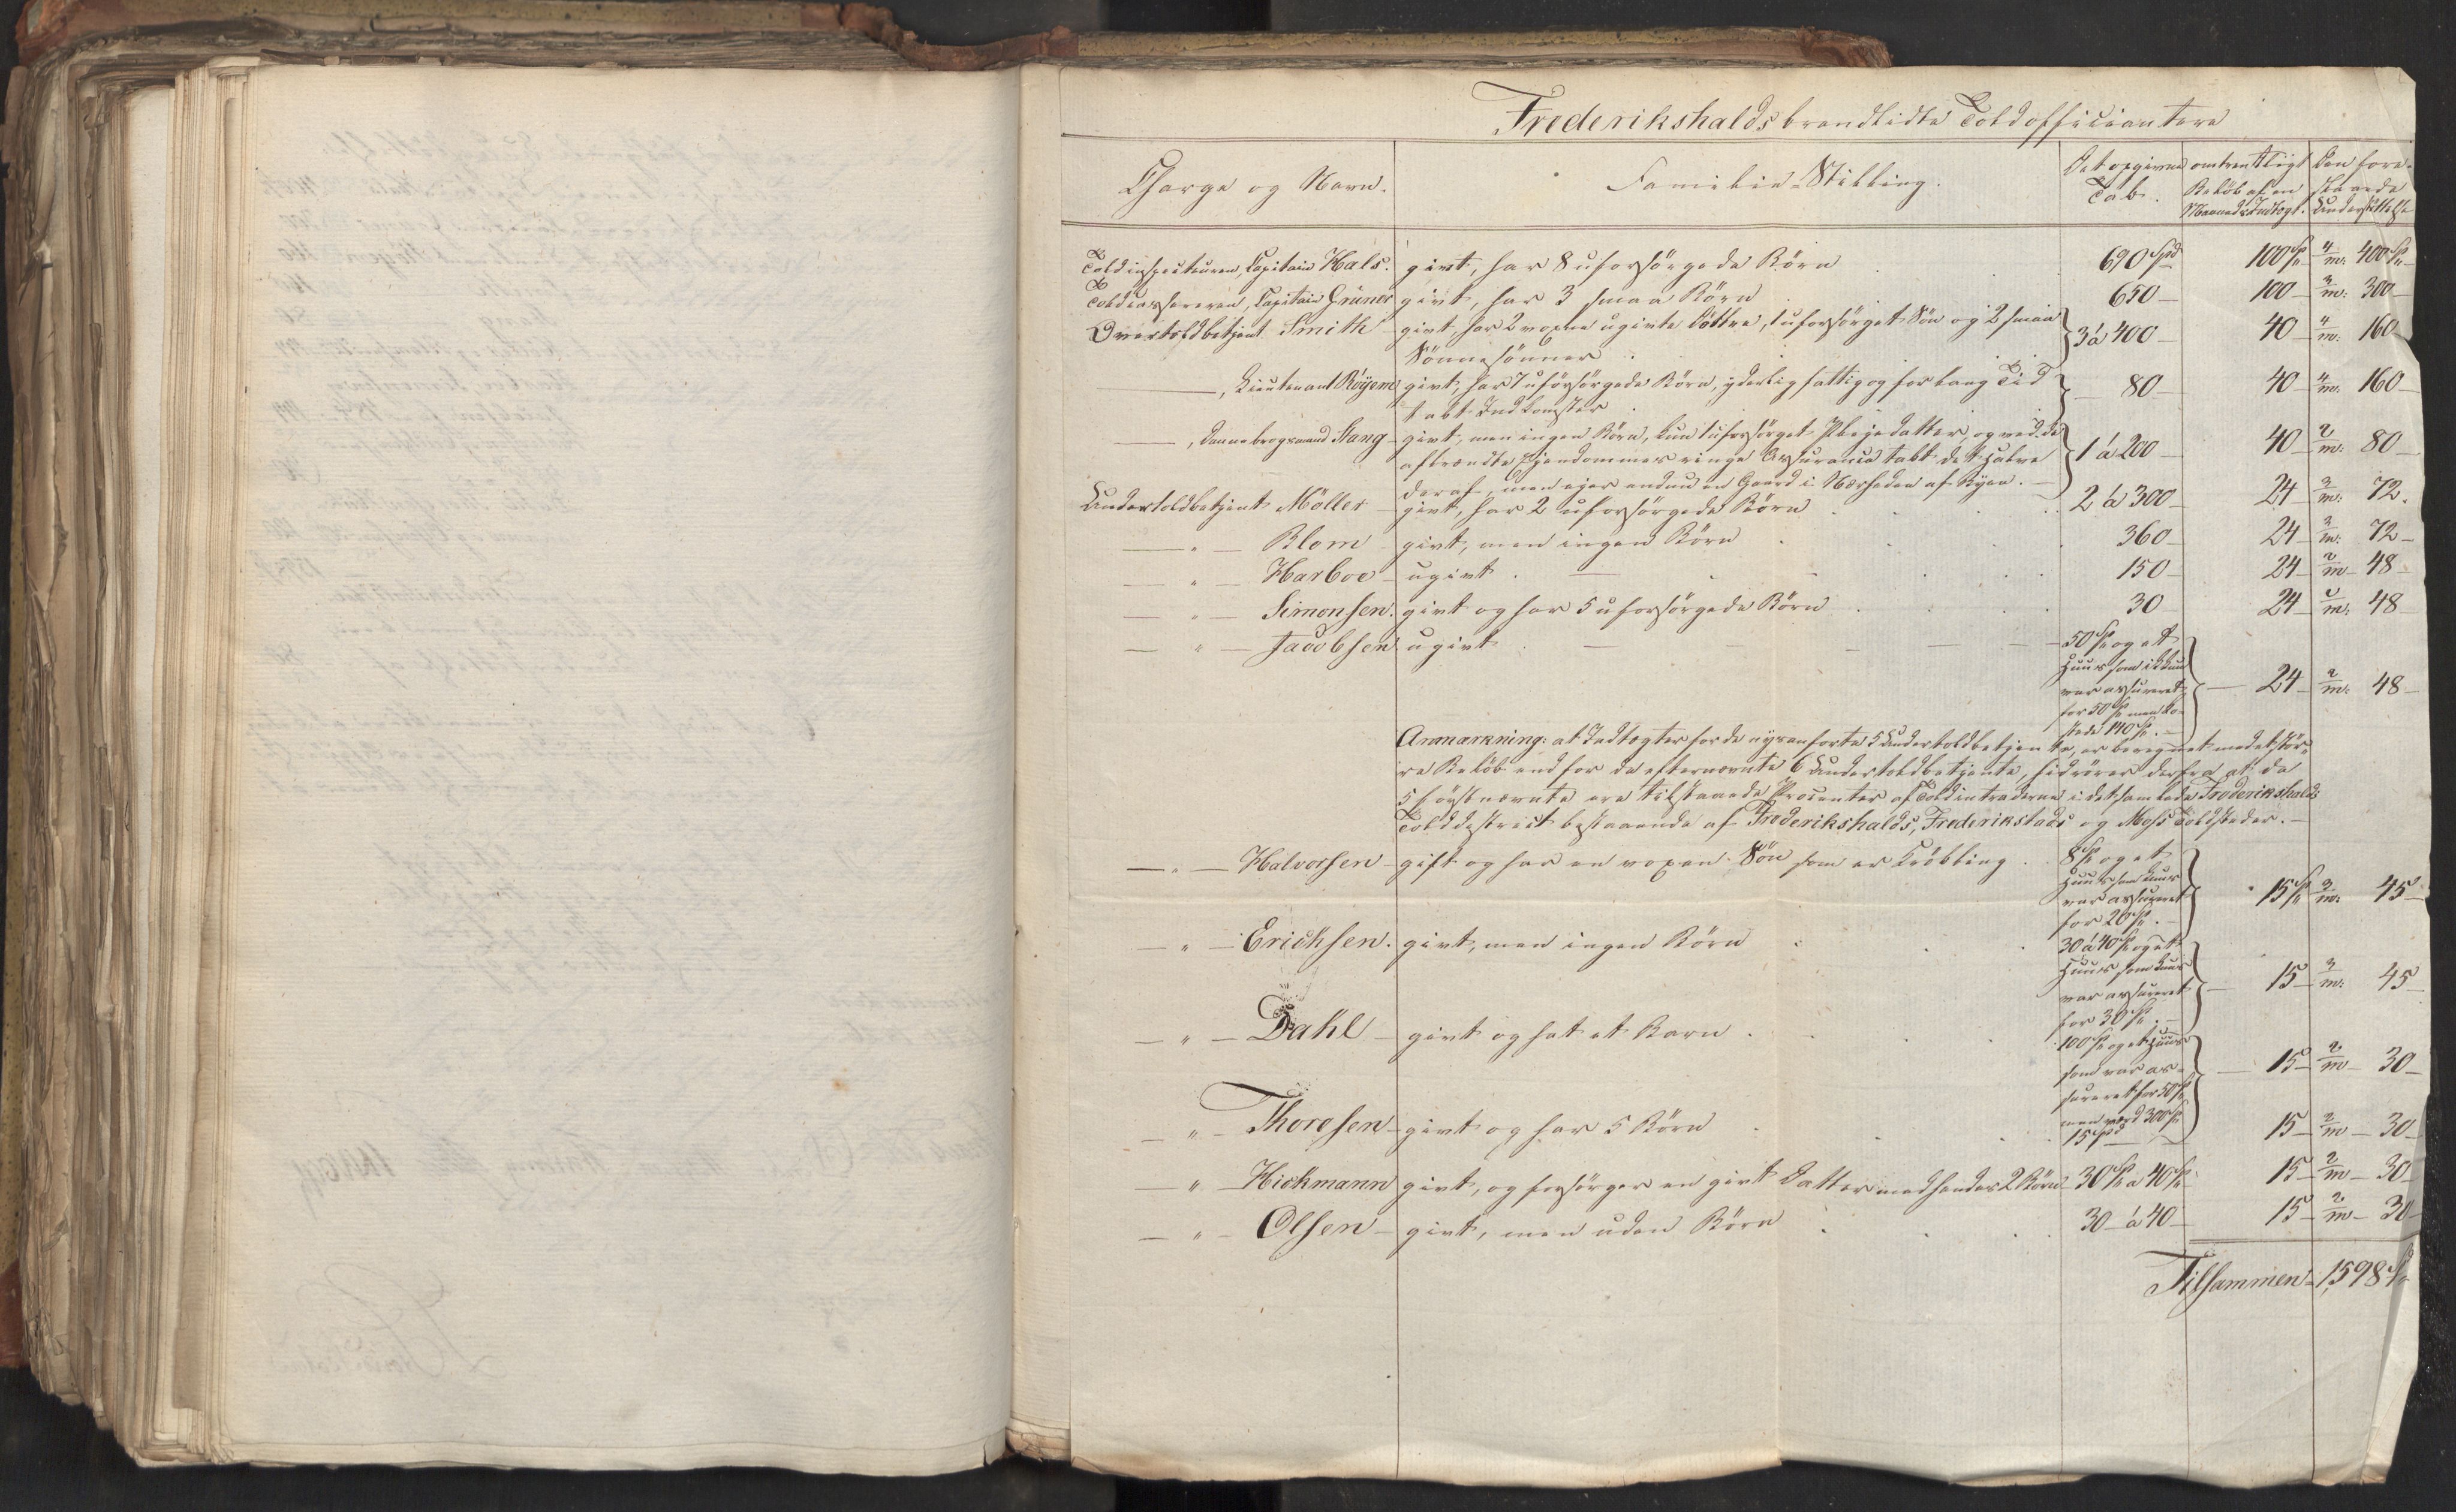 Frederikshalds brandlidte Toldofficiantere
Charge og Navn. Familie-Stilling. Det opgivne Tab. omtrentligt Beløb af en Maaneds Indtægt. Den fore-slaaede Understøttelse
Toldinspecteuren, Capitain Hals. givt, har 8 uforsörgede Börn 690 Spd 100 Sp 4/m: 400 Sp
Toldcassereren, Capitain Grüner givt, har 3 smaa Börn 650 — 100 — 3/m: 300 —
Overtoldbetjent Smith — givt, har 2 voxne ugivte Döttre, 1 uforsörget Sön og 2 smaa
Sönnesönner } 3 à 400 — 40 — 4/m: 160 —
———, Lieutenant Röyem givt, har 7 uforsörgede Börn, yderlig fattig og for lang Tid
tabt Indkomster } 80 — 40 — 4/m: 160 —
———, Dannebrogsmand Stang — givt, men ingen Börn, kun 1 uforsörget Pleiedatter, og ved de
afbrændte Ejendommes ringe Assurance tabt det halve
deraf, men ejer endnu en Gaard i Nærheden af Byen. — } 1 à 200 — 40 — 2/m: 80 —
Undertoldbetjent Möller — givt, har 2 uforsörgede Börn 2 à 300 — 24 — 3/m: 72.
— " — Blom — givt, men ingen Börn 360 — 24 — 3/m: 72 —
— " — Harboe — ugivt. 150 — 24 — 2/m — 48 —
— " — Simonsen. givt og har 5 uforsörgede Börn 30 24 — 2/m: 48
— " — Jacobsen ugivt. — 50 Sp og et
Huus som ikkun
var assureret
for 50 Sp men ko-
stede 140 Sp. — } — 24 — 2/m: 48 —
Anmærkning: at Indtægter for de nysanförte 5 Undertoldbetjente, er beregnet med et stör-
re Belöb end for de efternævnte 6 Undertoldbetjente, hidrører derfra at de
5 förstnævnte ere tilstaaede Procenter af Toldintraderne i det samlede Frederikshalds
Tolddistrict bestaaende af Frederikshalds, Frederikstads og Moss Toldsteder. —
— " — Halvorsen — gift og har en voxen Sön som er Kröbling 8 Sp og et
Huus som kuns
var assureret
for 20 Sp. — } 15 Sp 3/m: 45 —
— " — Erichsen. givt, men ingen Börn 30 à 40 Sp og et
Huus som kuns
var assureret
for 30 Sp. — } — 15 — 3/m: 45 —
— " — Dahl — givt og hat et Barn 100 Sp og et Huus
som var as-
sureret for 50 Sp
men værd 300 Sp } — 15 — 2/m — 30 —
— " — Thoresen — givt og har 5 Börn 15 Spd — 15 — 2/m — 30 —
— " — Hickmann givt, og forsörger en givt Datter med hendes 2 Börn — 30 Sp à 40 Sp 15 — 2/m — 30 —
— " — Olsen — givt, men uden Börn 30 — à 40 — 15 — 2/m — 30 —
Tilsammen — 1,598 Sp